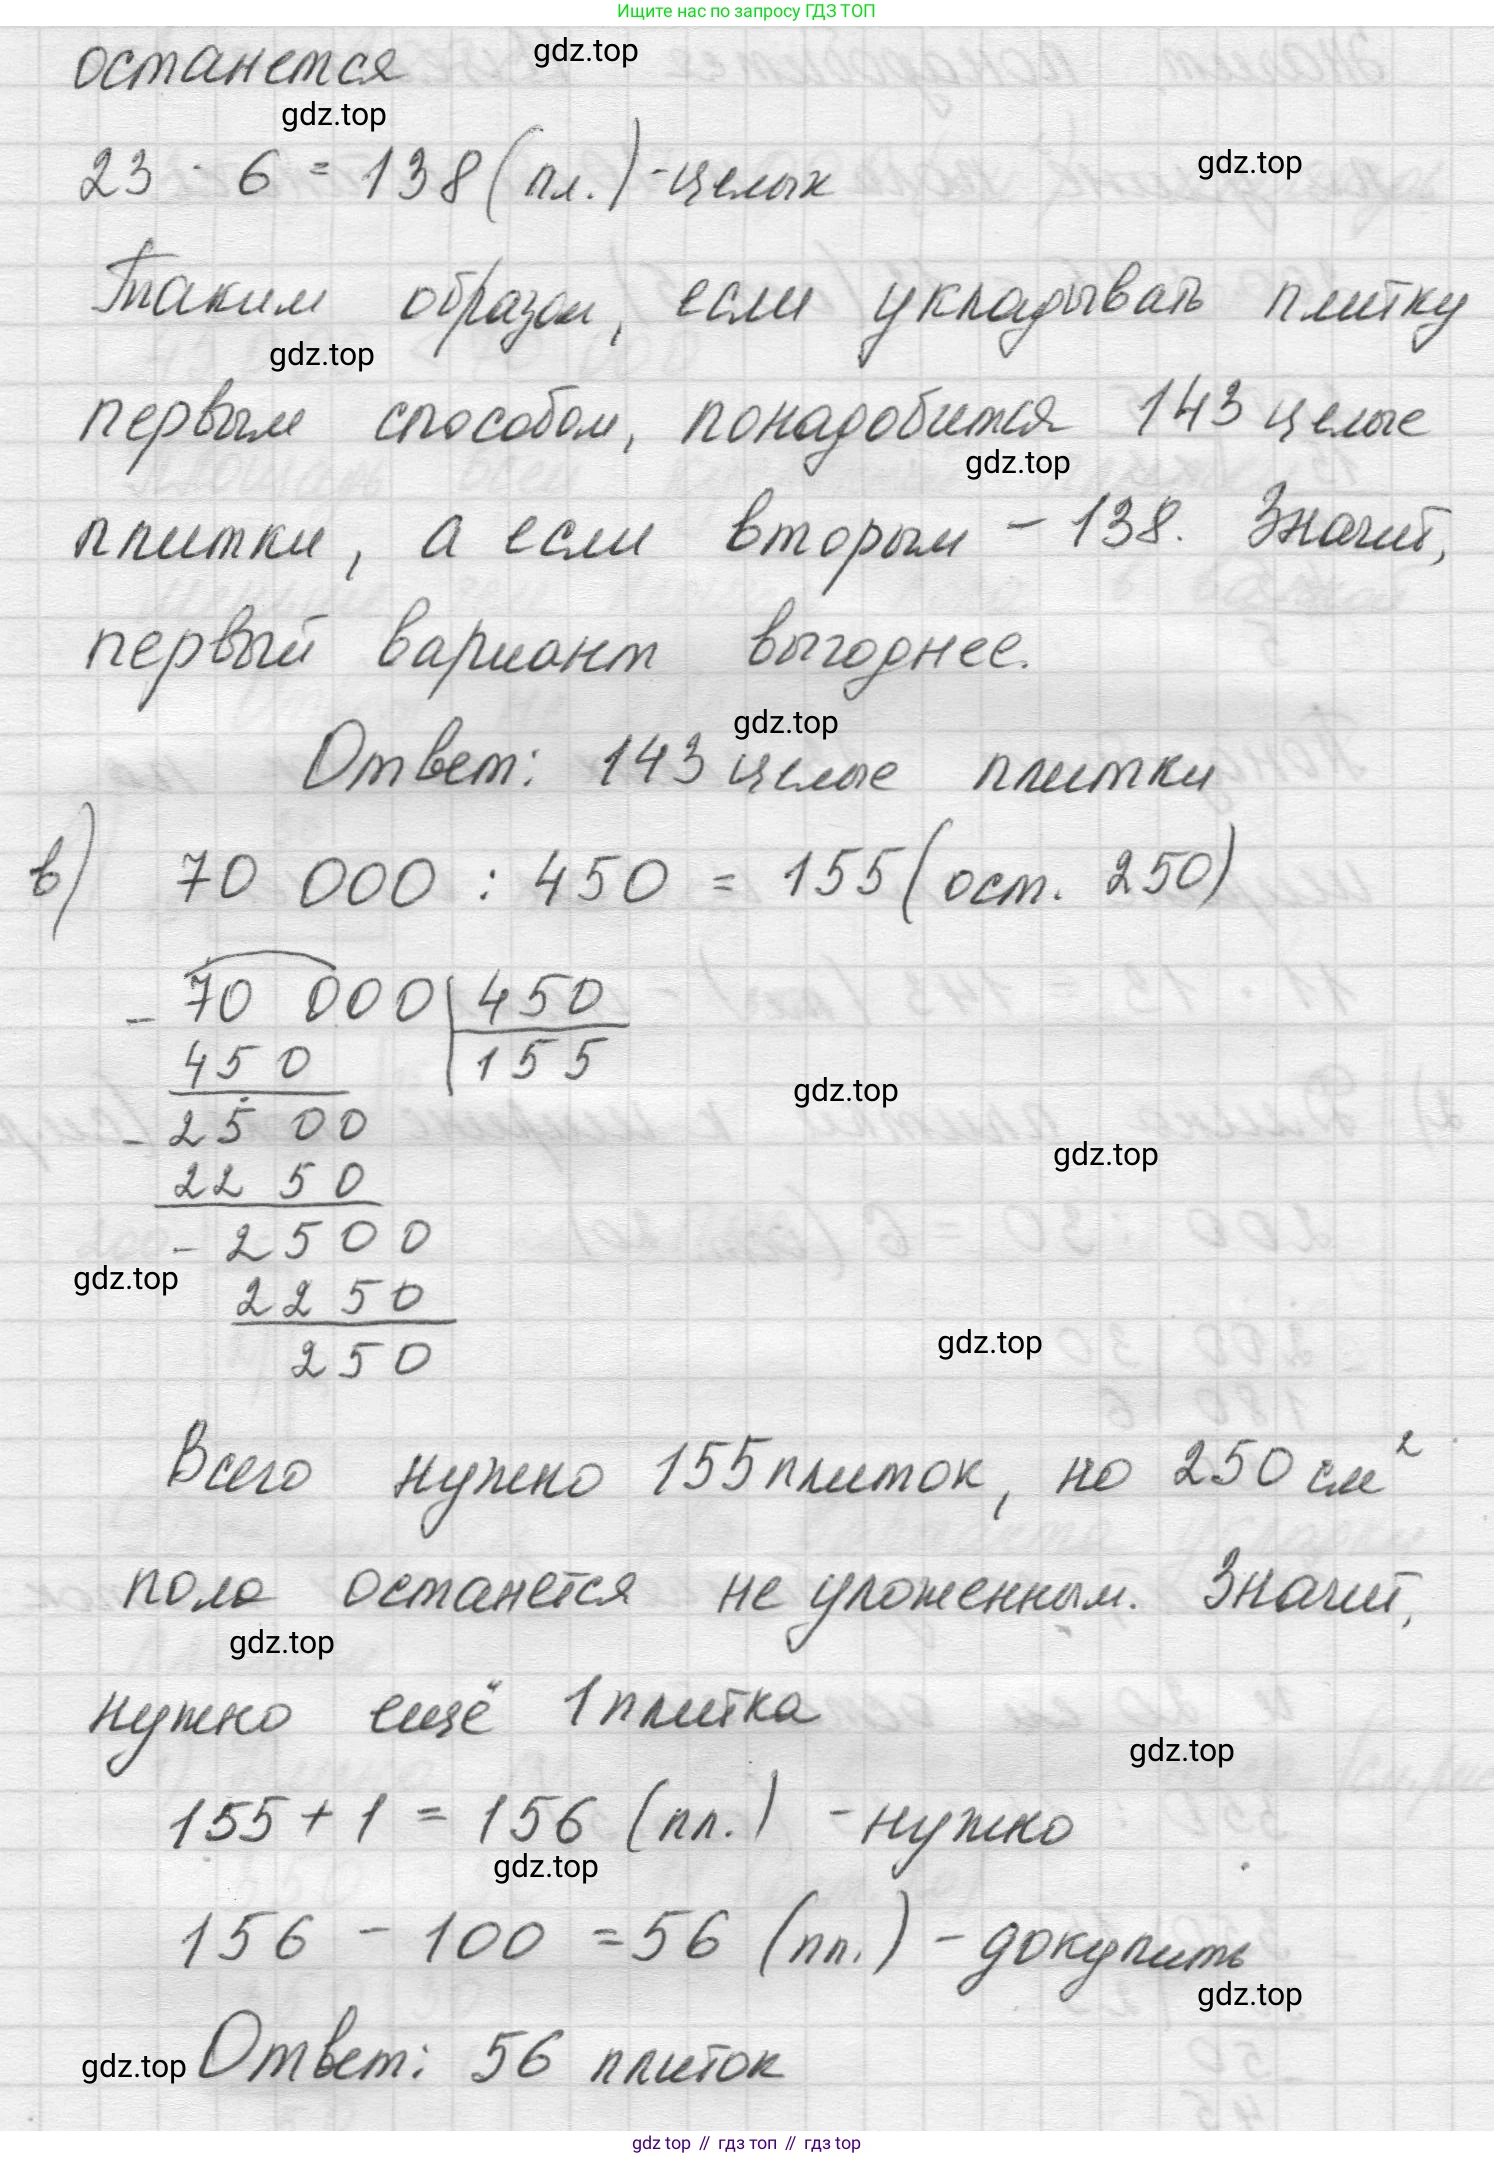 Ищите нас по запросу ГДЗ ТОП
останется
gdz.top
gdz.top
23 · 6 = 138 (пл.) - целых
gdz.top
Таким образом, если укладывать плитку
gdz.top
первым способом, понадобится 143 целые
gdz.top
плитки, а если вторым - 138. Значит,
первый вариант выгоднее.
gdz.top
Ответ: 143 целые плитки
в) 70 000 : 450 = 155 (ост. 250)
- 70 000 | 450
450 | 155
gdz.top
- 2500
gdz.top
2250
- 2500
gdz.top
2250
gdz.top
250
Всего нужно 155 плиток, но 250 см²
пола останется не уложенным. Значит,
gdz.top
нужно ещё 1 плитка
gdz.top
155 + 1 = 156 (пл.) - нужно
gdz.top
156 - 100 = 56 (пл.) - докупить
gdz.top
gdz.top
Ответ: 56 плиток
gdz top // гдз топ // gdz top